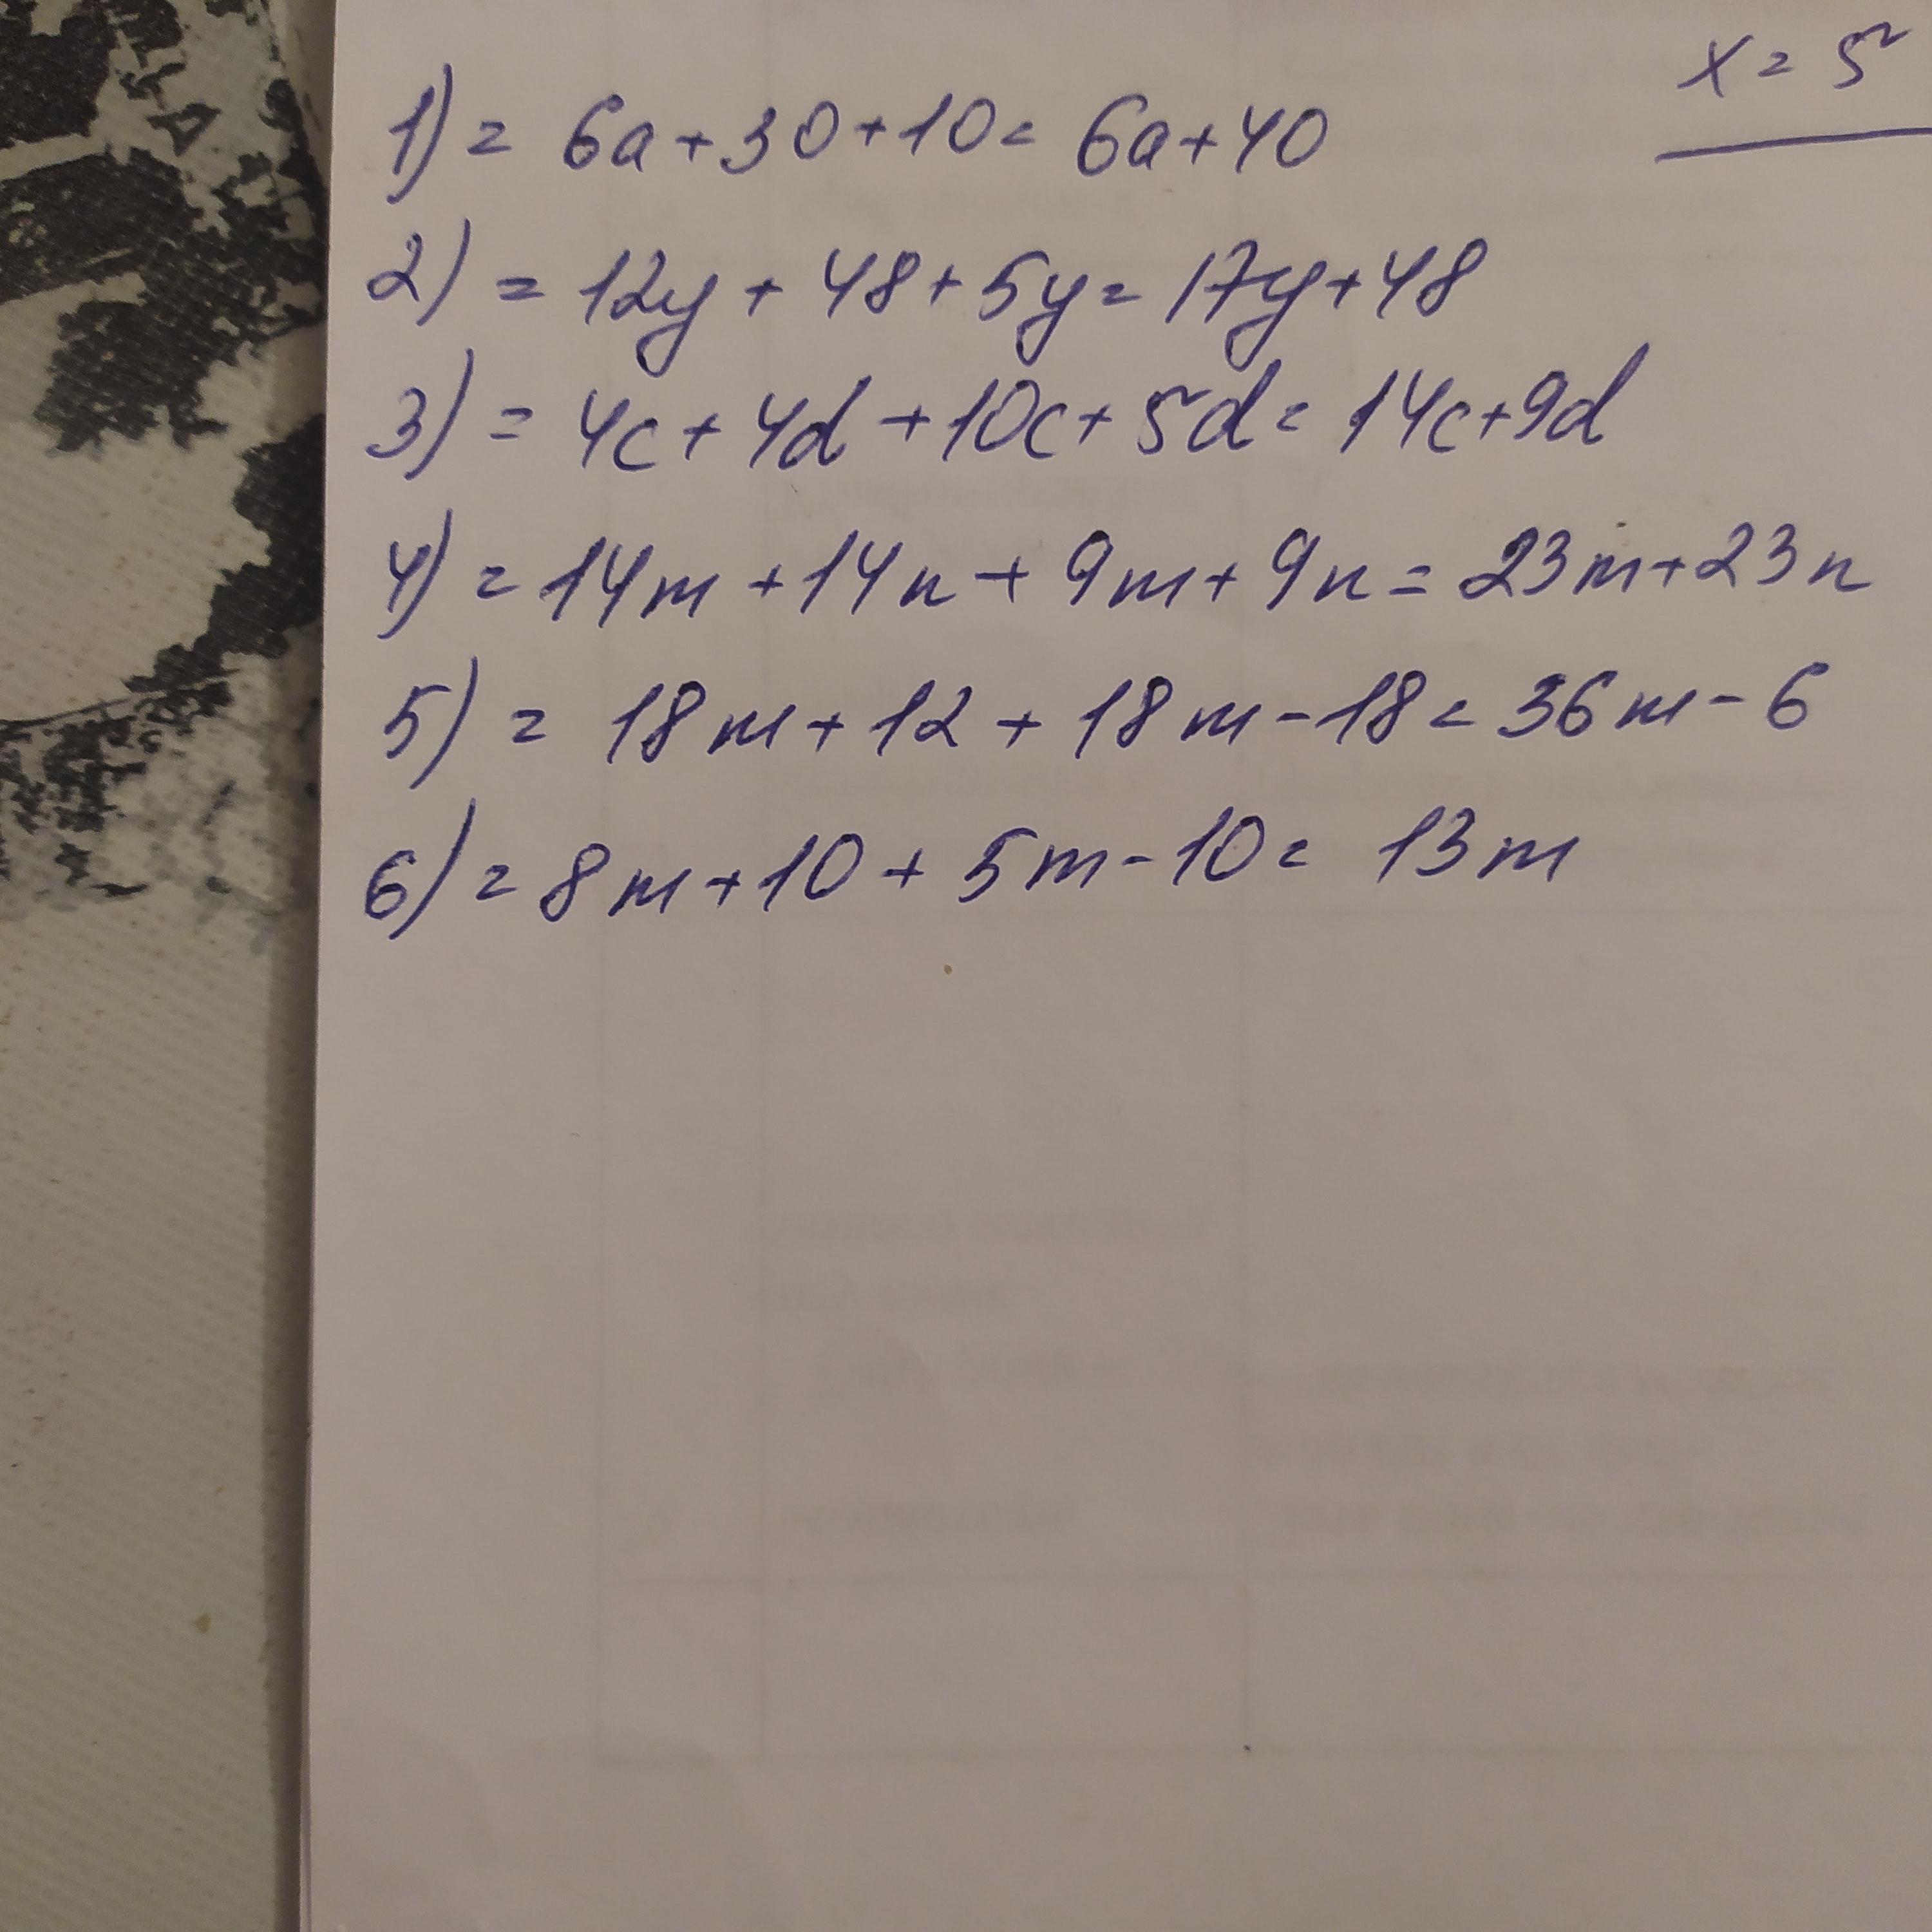 x = 5
1) = 6a + 30 + 10 = 6a + 40
2) = 12y + 48 + 5y = 17y + 48
3) = 4c + 4d + 10c + 5d = 14c + 9d
4) = 14m + 14n + 9m + 9n = 23m + 23n
5) = 18m + 12 + 18m - 18 = 36m - 6
6) = 8m + 10 + 5m - 10 = 13m